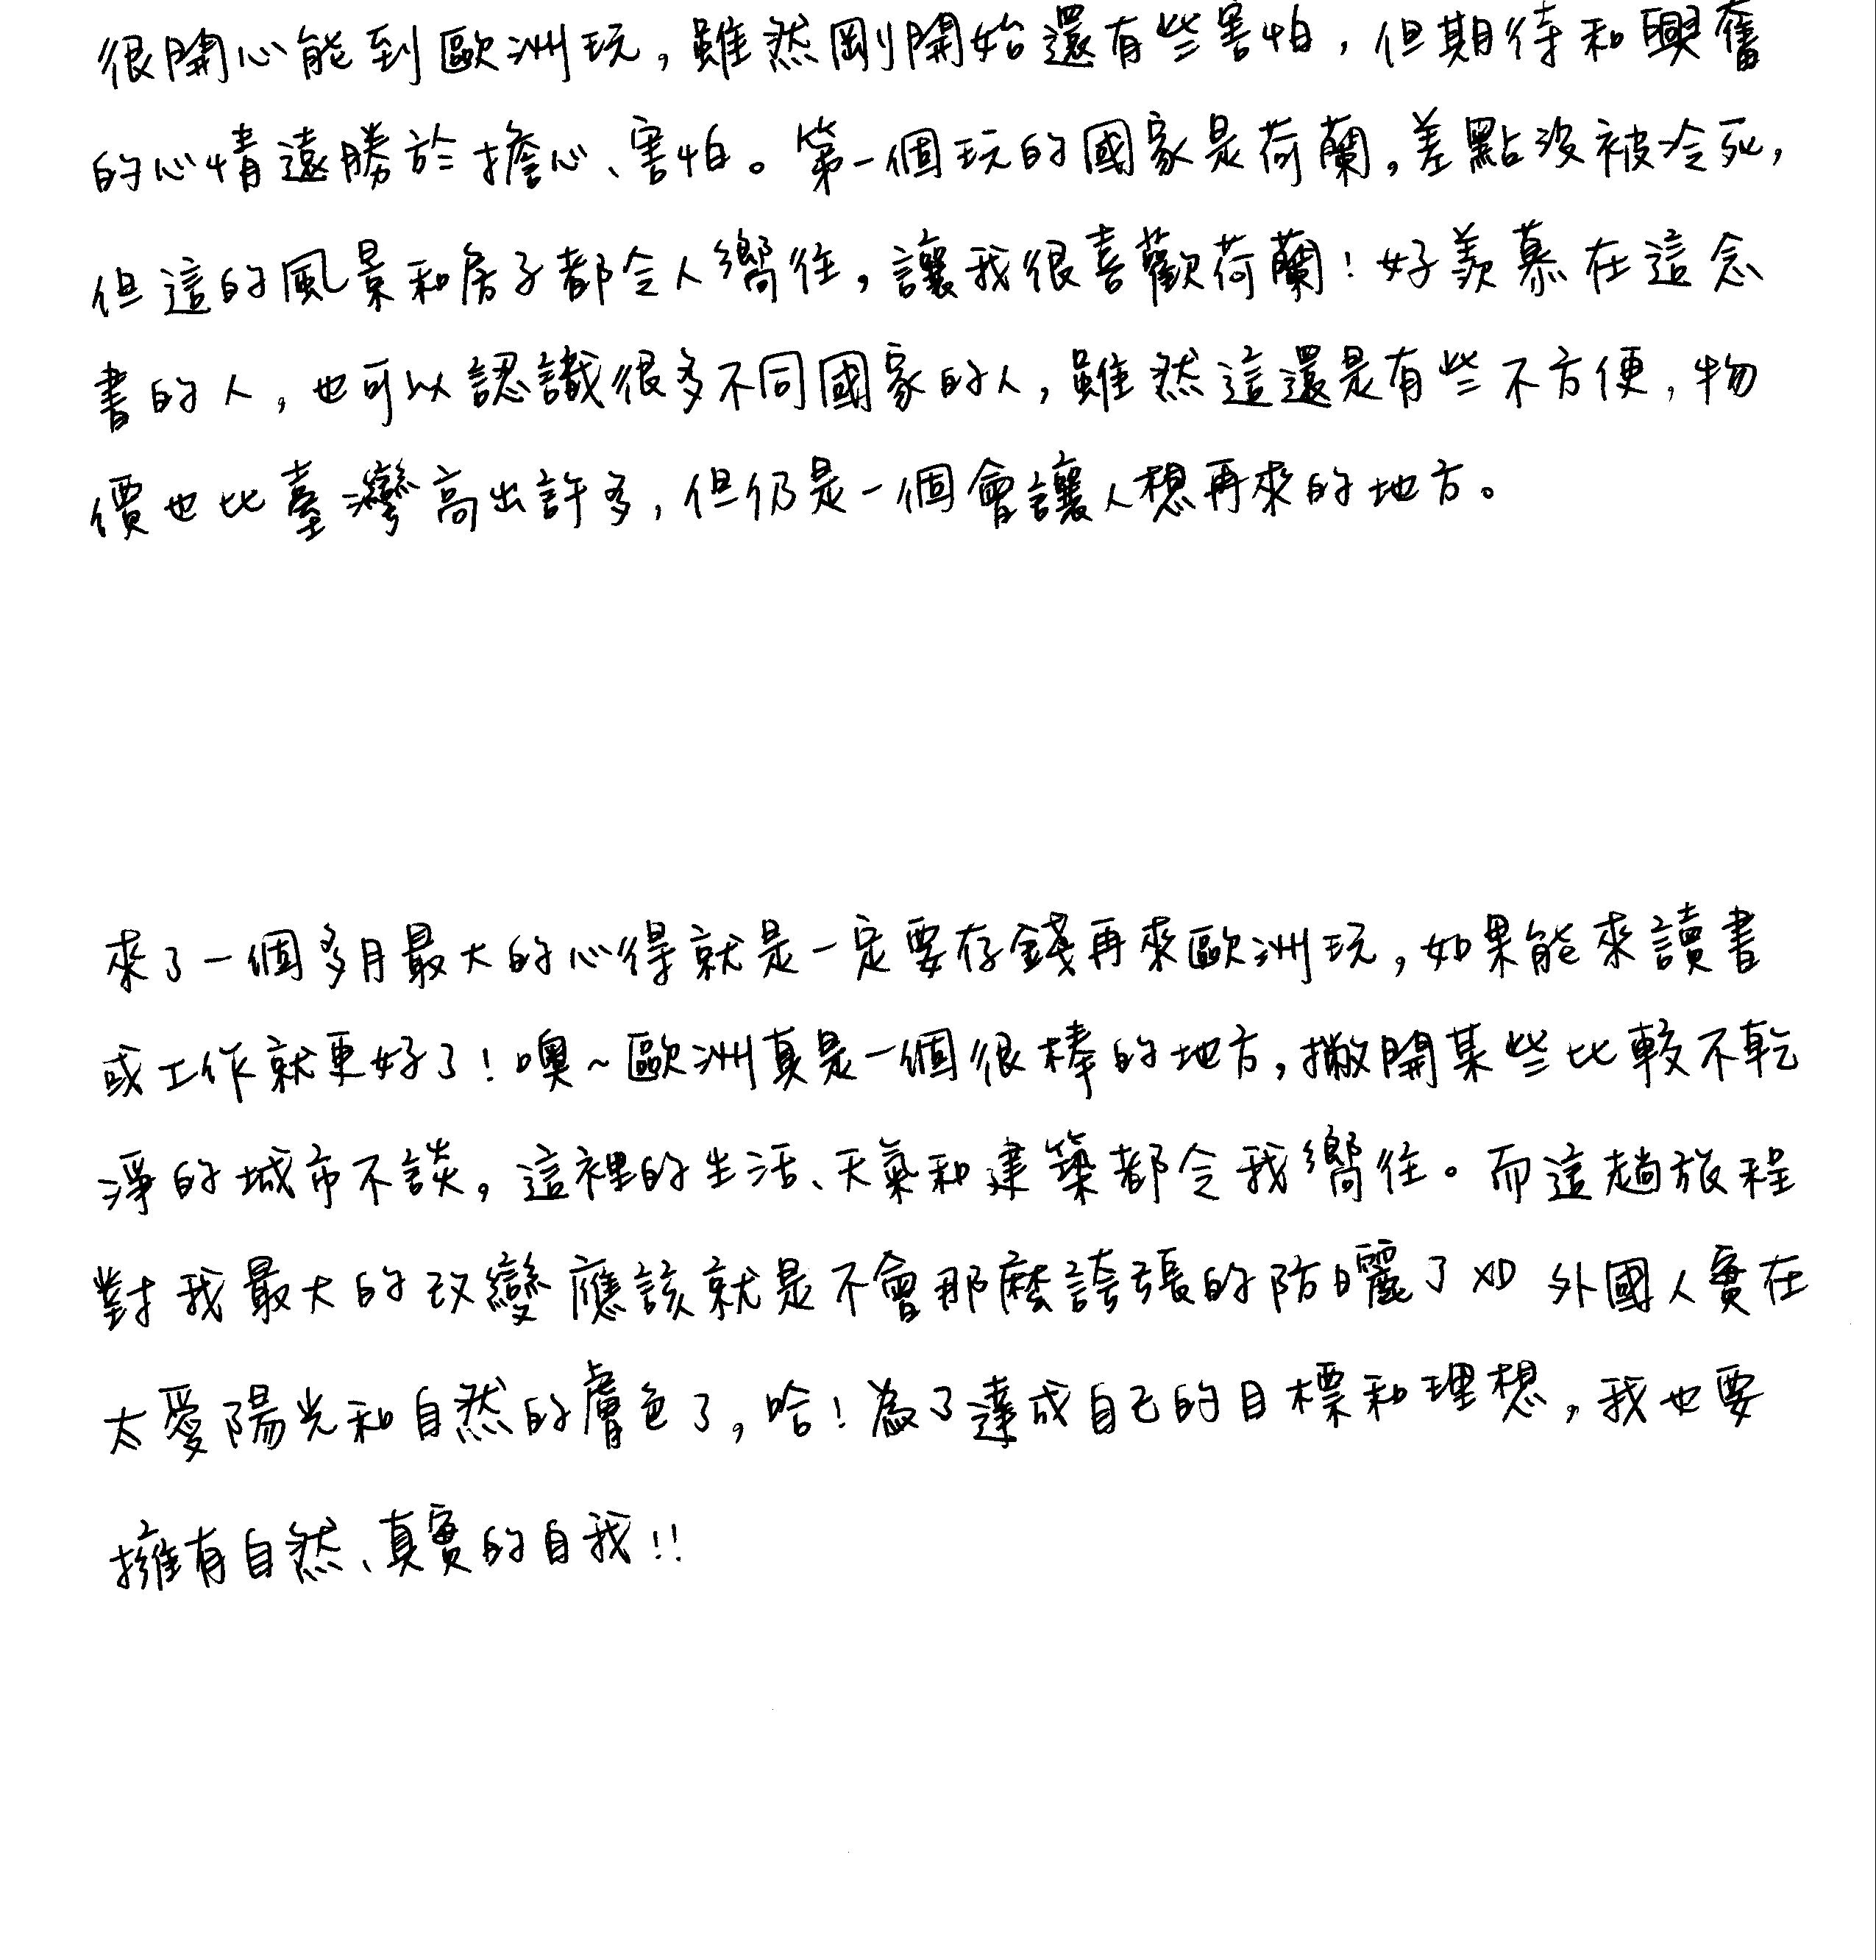 很開心能到歐洲玩，雖然剛開始還有些害怕，但期待和興奮
的心情遠勝於擔心、害怕。第一個玩的國家是荷蘭，差點沒被冷死，
但這的風景和房子都令人嚮往，讓我很喜歡荷蘭！好羨慕在這念
書的人，也可以認識很多不同國家的人，雖然這還是有些不方便，物
價也比臺灣高出許多，但仍是一個會讓人想再來的地方。
來了一個多月最大的心得就是一定要存錢再來歐洲玩，如果能來讀書
或工作就更好了！噢~歐洲真是一個很棒的地方，撇開某些比較不乾
淨的城市不談，這裡的生活、天氣和建築都令我嚮往。而這趟旅程
對我最大的改變應該就是不會那麼誇張的防曬了XD 外國人實在
太愛陽光和自然的膚色了，哈！為了達成自己的目標和理想，我也要
擁有自然、真實的自我!!